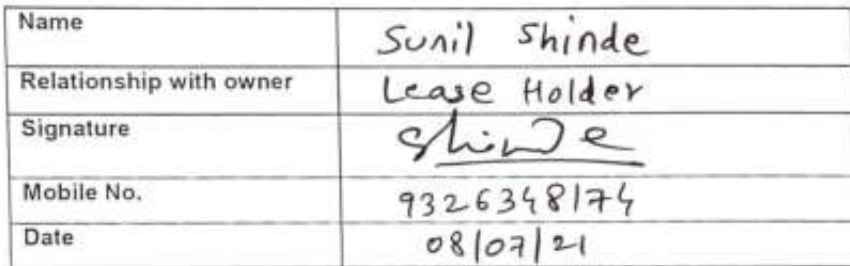 Name Sunil Shinde
Relationship with owner Lease Holder
Signature Shinde
Mobile No. 9326348174
Date 08/07/21